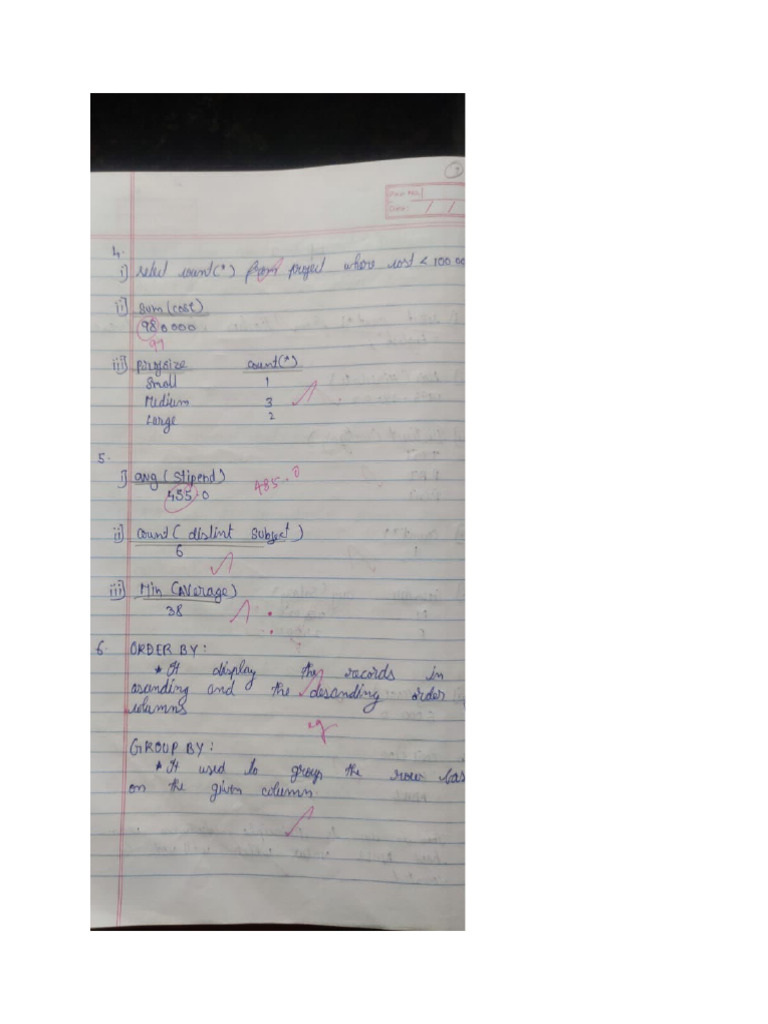 Page No.
Date: / /
4.
i) select count(*) from project where cost < 100 00
ii) sum(cost)
980000
97
iii) projsize count(*)
Small 1
Medium 3
Large 2
5.
i) avg(stipend)
455.0 485.0
ii) count( distint subject )
6
iii) Min (Average)
38
6. ORDER BY:
* It display the records in
asanding and the desanding order
columns
eg
GROUP BY:
* It used to group the row bas
on the given column.